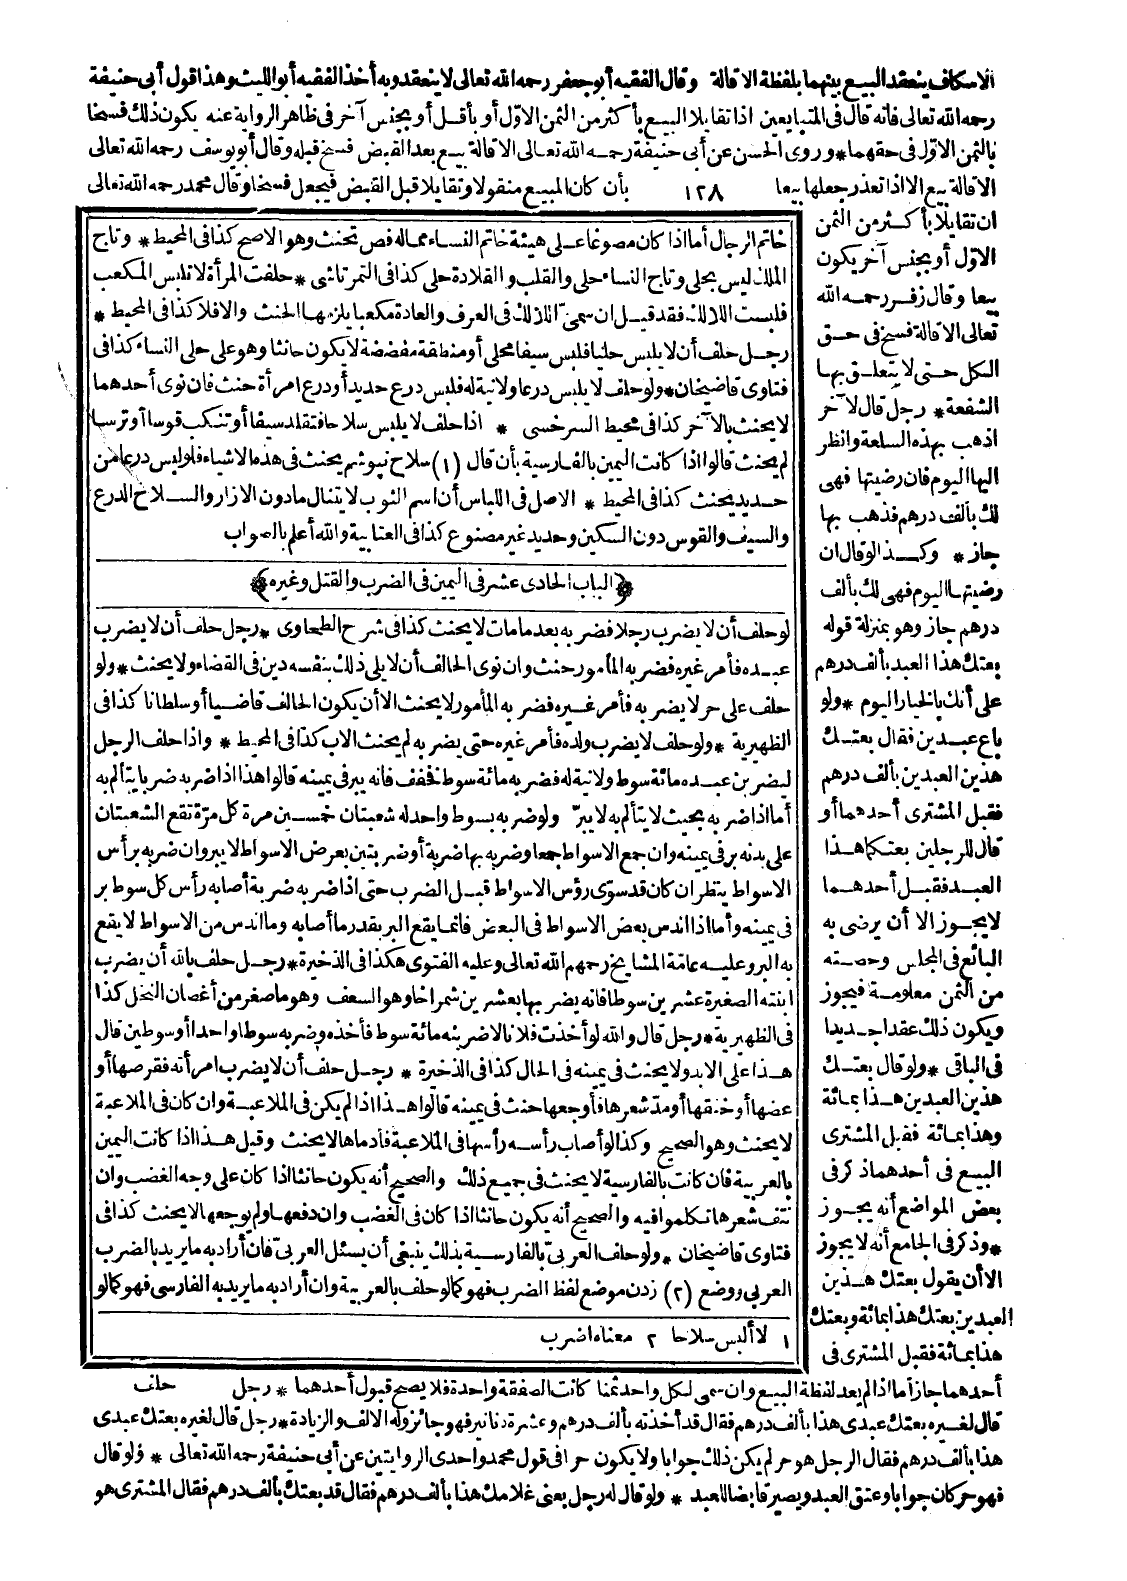 الاسكاف ينعقد البيع بينهما بلفظة الاقالة وقال الفقيه أبو جعفر رحمه الله تعالى لا ينعقد وبه أخذ الفقيه أبو الليث وهذا قول أبى حنيفة
رحمه الله تعالى فانه قال فى المتبايعين اذا تقايلا البيع بأكثر من الثمن الاوّل أو بأقل أو بجنس آخر فى ظاهر الرواية عنه يكون ذلك فسخا
بالثمن الاوّل فى حقهما * وروى الحسن عن أبى حنيفة رحمه الله تعالى الاقالة بيع بعد القبض فسخ قبله وقال أبو يوسف رحمه الله تعالى
الاقالة بيع الا اذا تعذر جعلها بيعا ١٢٨ بأن كان المبيع منقولا وتقايلا قبل القبض فيجعل فسخا وقال محمد رحمه الله تعالى
ان تقايلا بأكثر من الثمن
الاوّل أو بجنس آخر يكون
بيعا وقال زفر رحمه الله
تعالى الاقالة فسخ فى حق
الكل حتى لا يتعلق بها
الشفعة * رجل قال لآخر
اذهب بهذه السلعة وانظر
اليها اليوم فان رضيتها فهى
لك بألف درهم فذهب بها
جاز * وكذا لو قال ان
رضيتها اليوم فهى لك بألف
درهم جاز وهو بمنزلة قوله
بعتك هذا العبد بألف درهم
على أنك بالخيار اليوم * ولو
باع عبدين فقال بعتك
هذين العبدين بألف درهم
فقبل المشترى أحدهما أو
قال للرجلين بعتكما هذا
العبد فقبل أحدهما
لا يجوز الا أن يرضى به
البائع فى المجلس وحصته
من الثمن معلومة فيجوز
ويكون ذلك عقدا جديدا
فى الباقى * ولو قال بعتك
هذين العبدين هذا بمائة
وهذا بمائة فقبل المشترى
البيع فى أحدهما ذكر فى
بعض المواضع أنه يجوز
* وذكر فى الجامع أنه لا يجوز
الا أن يقول بعتك هذين
العبدين بعتك هذا بمائة وبعتك
هذا بمائة فقبل المشترى فى
خاتم الرجال أما اذا كان مصوغا على هيئة خاتم النساء مما له فص تحنث وهو الاصح كذا فى المحيط * وتاج
الملك ليس بحلى وتاج النساء حلى والقلب والقلادة حلى كذا فى التمرتاشى * حلفت المرأة لا تلبس المكعب
فلبست اللالك فقد قيل ان سمى اللالك فى العرف والعادة مكعبا يلزمها الحنث والا فلا كذا فى المحيط *
رجل حلف أن لا يلبس حليا فلبس سيفا محلى أو منطقة مفضضة لا يكون حانثا وهو على حلى النساء كذا فى
فتاوى قاضيخان * ولو حلف لا يلبس درعا ولا نية له فلبس درع حديد أو درع امرأة حنث فان نوى أحدهما
لا يحنث بالآخر كذا فى محيط السرخسى * اذا حلف لا يلبس سلاحا فتقلد سيفا أو تنكب قوسا أو ترسا
لم يحنث قالوا اذا كانت اليمين بالفارسية بأن قال (١) سلاح نپوشم يحنث فى هذه الاشياء فلو لبس درعا من
حديد يحنث كذا فى المحيط * الاصل فى اللباس أن اسم الثوب لا يتناول مادون الازار والسلاح الدرع
والسيف والقوس دون السكين وحديد غير مصنوع كذا فى العتابية والله أعلم بالصواب
﴿الباب الحادى عشر فى اليمين فى الضرب والقتل وغيره﴾
لو حلف أن لا يضرب رجلا فضربه بعد ما مات لا يحنث كذا فى شرح الطحاوى * رجل حلف أن لا يضرب
عبده فأمر غيره فضربه المأمور حنث وان نوى الحالف أن لا يلى ذلك بنفسه دين فى القضاء ولا يحنث * ولو
حلف على حر لا يضربه فأمر غيره فضربه المأمور لا يحنث الا أن يكون الحالف قاضيا أو سلطانا كذا فى
الظهيرية * ولو حلف لا يضرب ولده فأمر غيره حتى يضربه لم يحنث الاب كذا فى المحيط * واذا حلف الرجل
ليضربن عبده مائة سوط ولا نية له فضربه مائة سوط فخفف فانه يبر فى يمينه قالوا هذا اذا ضربه ضربا يتألم به
أما اذا ضربه بحيث لا يتألم به لا يبرّ ولو ضربه بسوط واحد له شعبتان خمسين مرة كل مرّة تقع الشعبتان
على بدنه بر فى يمينه وان جمع الاسواط جمعا وضربه بها ضربة أو ضربتين بعرض الاسواط لا يبر وان ضربه برأس
الاسواط ينظر ان كان قد سوّى رؤس الاسواط قبل الضرب حتى اذا ضربه ضربة أصابه رأس كل سوط بر
فى يمينه وأما اذا اندس بعض الاسواط فى البعض فانما يقع البر بقدر ما أصابه وما اندس من الاسواط لا يقع
به البر وعليه عامّة المشايخ رحمهم الله تعالى وعليه الفتوى هكذا فى الذخيرة * رجل حلف بالله أن يضرب
ابنته الصغيرة عشرين سوطا فانه يضربها بعشرين شمراخا وهو السعف وهو ما صغر من أغصان النخل كذا
فى الظهيرية * رجل قال والله لو أخذت فلانا لاضربنه مائة سوط فأخذه وضربه سوطا واحدا أو سوطين قال
هذا على الابد ولا يحنث فى يمينه فى الحال كذا فى الذخيرة * رجل حلف أن لا يضرب امرأته فقرصها أو
عضها أو خنقها أو مدّ شعرها فأوجعها حنث فى يمينه قالوا هذا اذا لم يكن فى الملاعبة وان كان فى الملاعبة
لا يحنث وهو الصحيح وكذا لو أصاب رأسه رأسها فى الملاعبة فأدماها لا يحنث وقيل هذا اذا كانت اليمين
بالعربية فان كانت بالفارسية لا يحنث فى جميع ذلك والصحيح أنه يكون حانثا اذا كان على وجه الغضب وان
نتف شعرها تكلموا فيه والصحيح أنه يكون حانثا اذا كان فى الغضب وان دفعها ولم يوجعها لا يحنث كذا فى
فتاوى قاضيخان * ولو حلف العربىّ بالفارسية بذلك ينبغى أن يسئل العربىّ فان أراد به ما يريد بالضرب
العربى ووضع (٢) زدن موضع لفظ الضرب فهو كما لو حلف بالعربية وان أراد به ما يريد به الفارسى فهو كما لو
١ لا ألبس سلاحا ٢ معناه اضرب
أحدهما جاز أما اذا لم يعد لفظة البيع وان سمى لكل واحد ثمنا كانت الصفقة واحدة فلا يصح قبول أحدهما * رجل حلف
قال لغيره بعتك عبدى هذا بألف درهم فقال قد أخذته بألف درهم وعشرة دنانير فهو جائز وله الالف والزيادة * رجل قال لغيره بعتك عبدى
هذا بألف درهم فقال الرجل هو حر لم يكن ذلك جوابا ولا يكون حرا فى قول محمد واحدى الروايتين عن أبى حنيفة رحمه الله تعالى * ولو قال
فهو حر كان جوابا وعتق العبد ويصير قابضا للعبد * ولو قال له رجل بعنى غلامك هذا بألف درهم فقال قد بعتك بألف درهم فقال المشترى هو